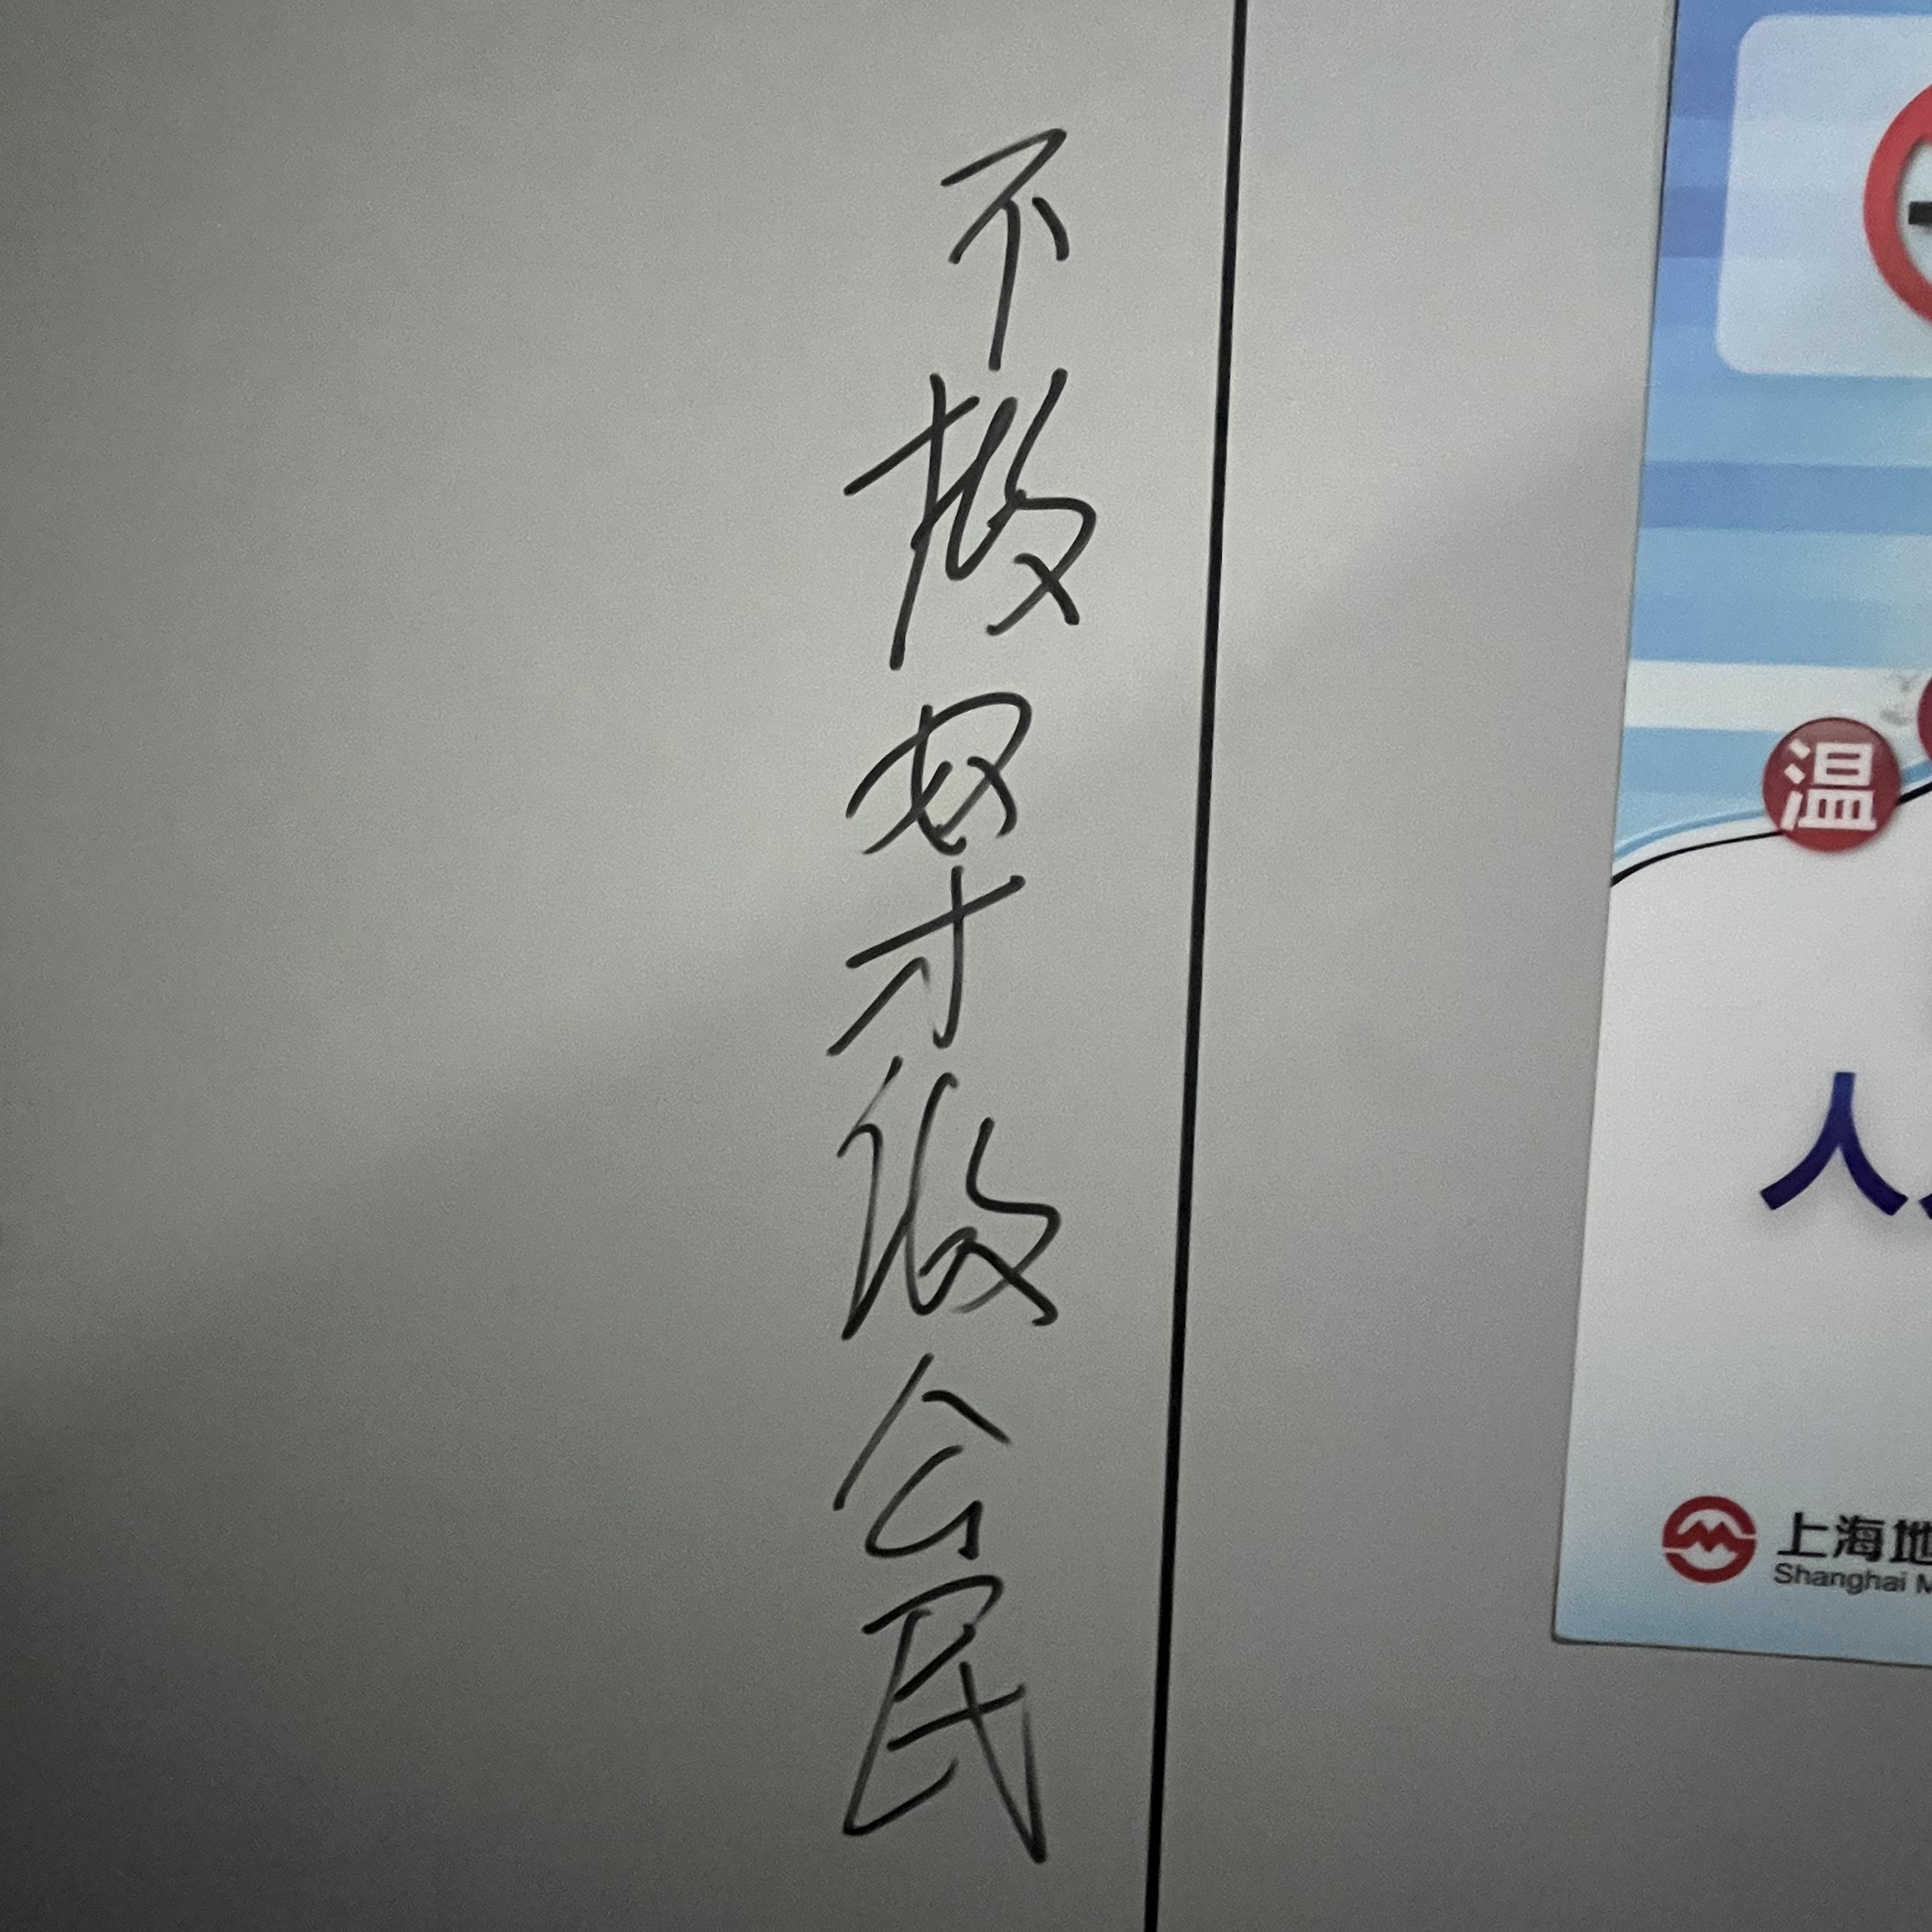 不做奴才做公民
温
人
上海地
Shanghai M